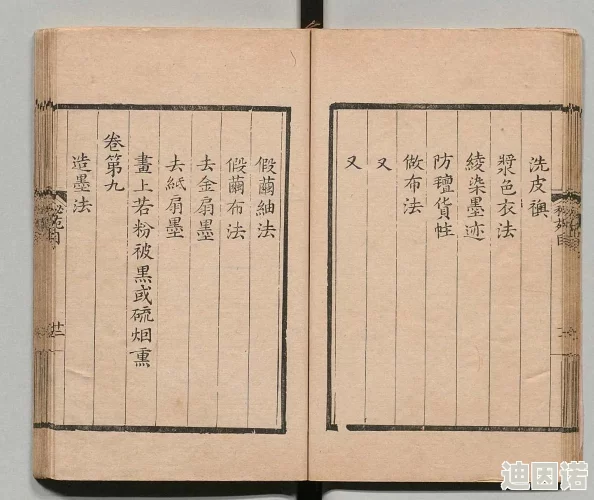 洗皮襖
漿色衣法
綾染墨迹
防氊貨蛀
做布法
又
又
假繭紬法
假繭布法
去金扇墨
去紙扇墨
畫上若粉被黑或硫烟熏
卷第九
造墨法
廿二
迪因诺